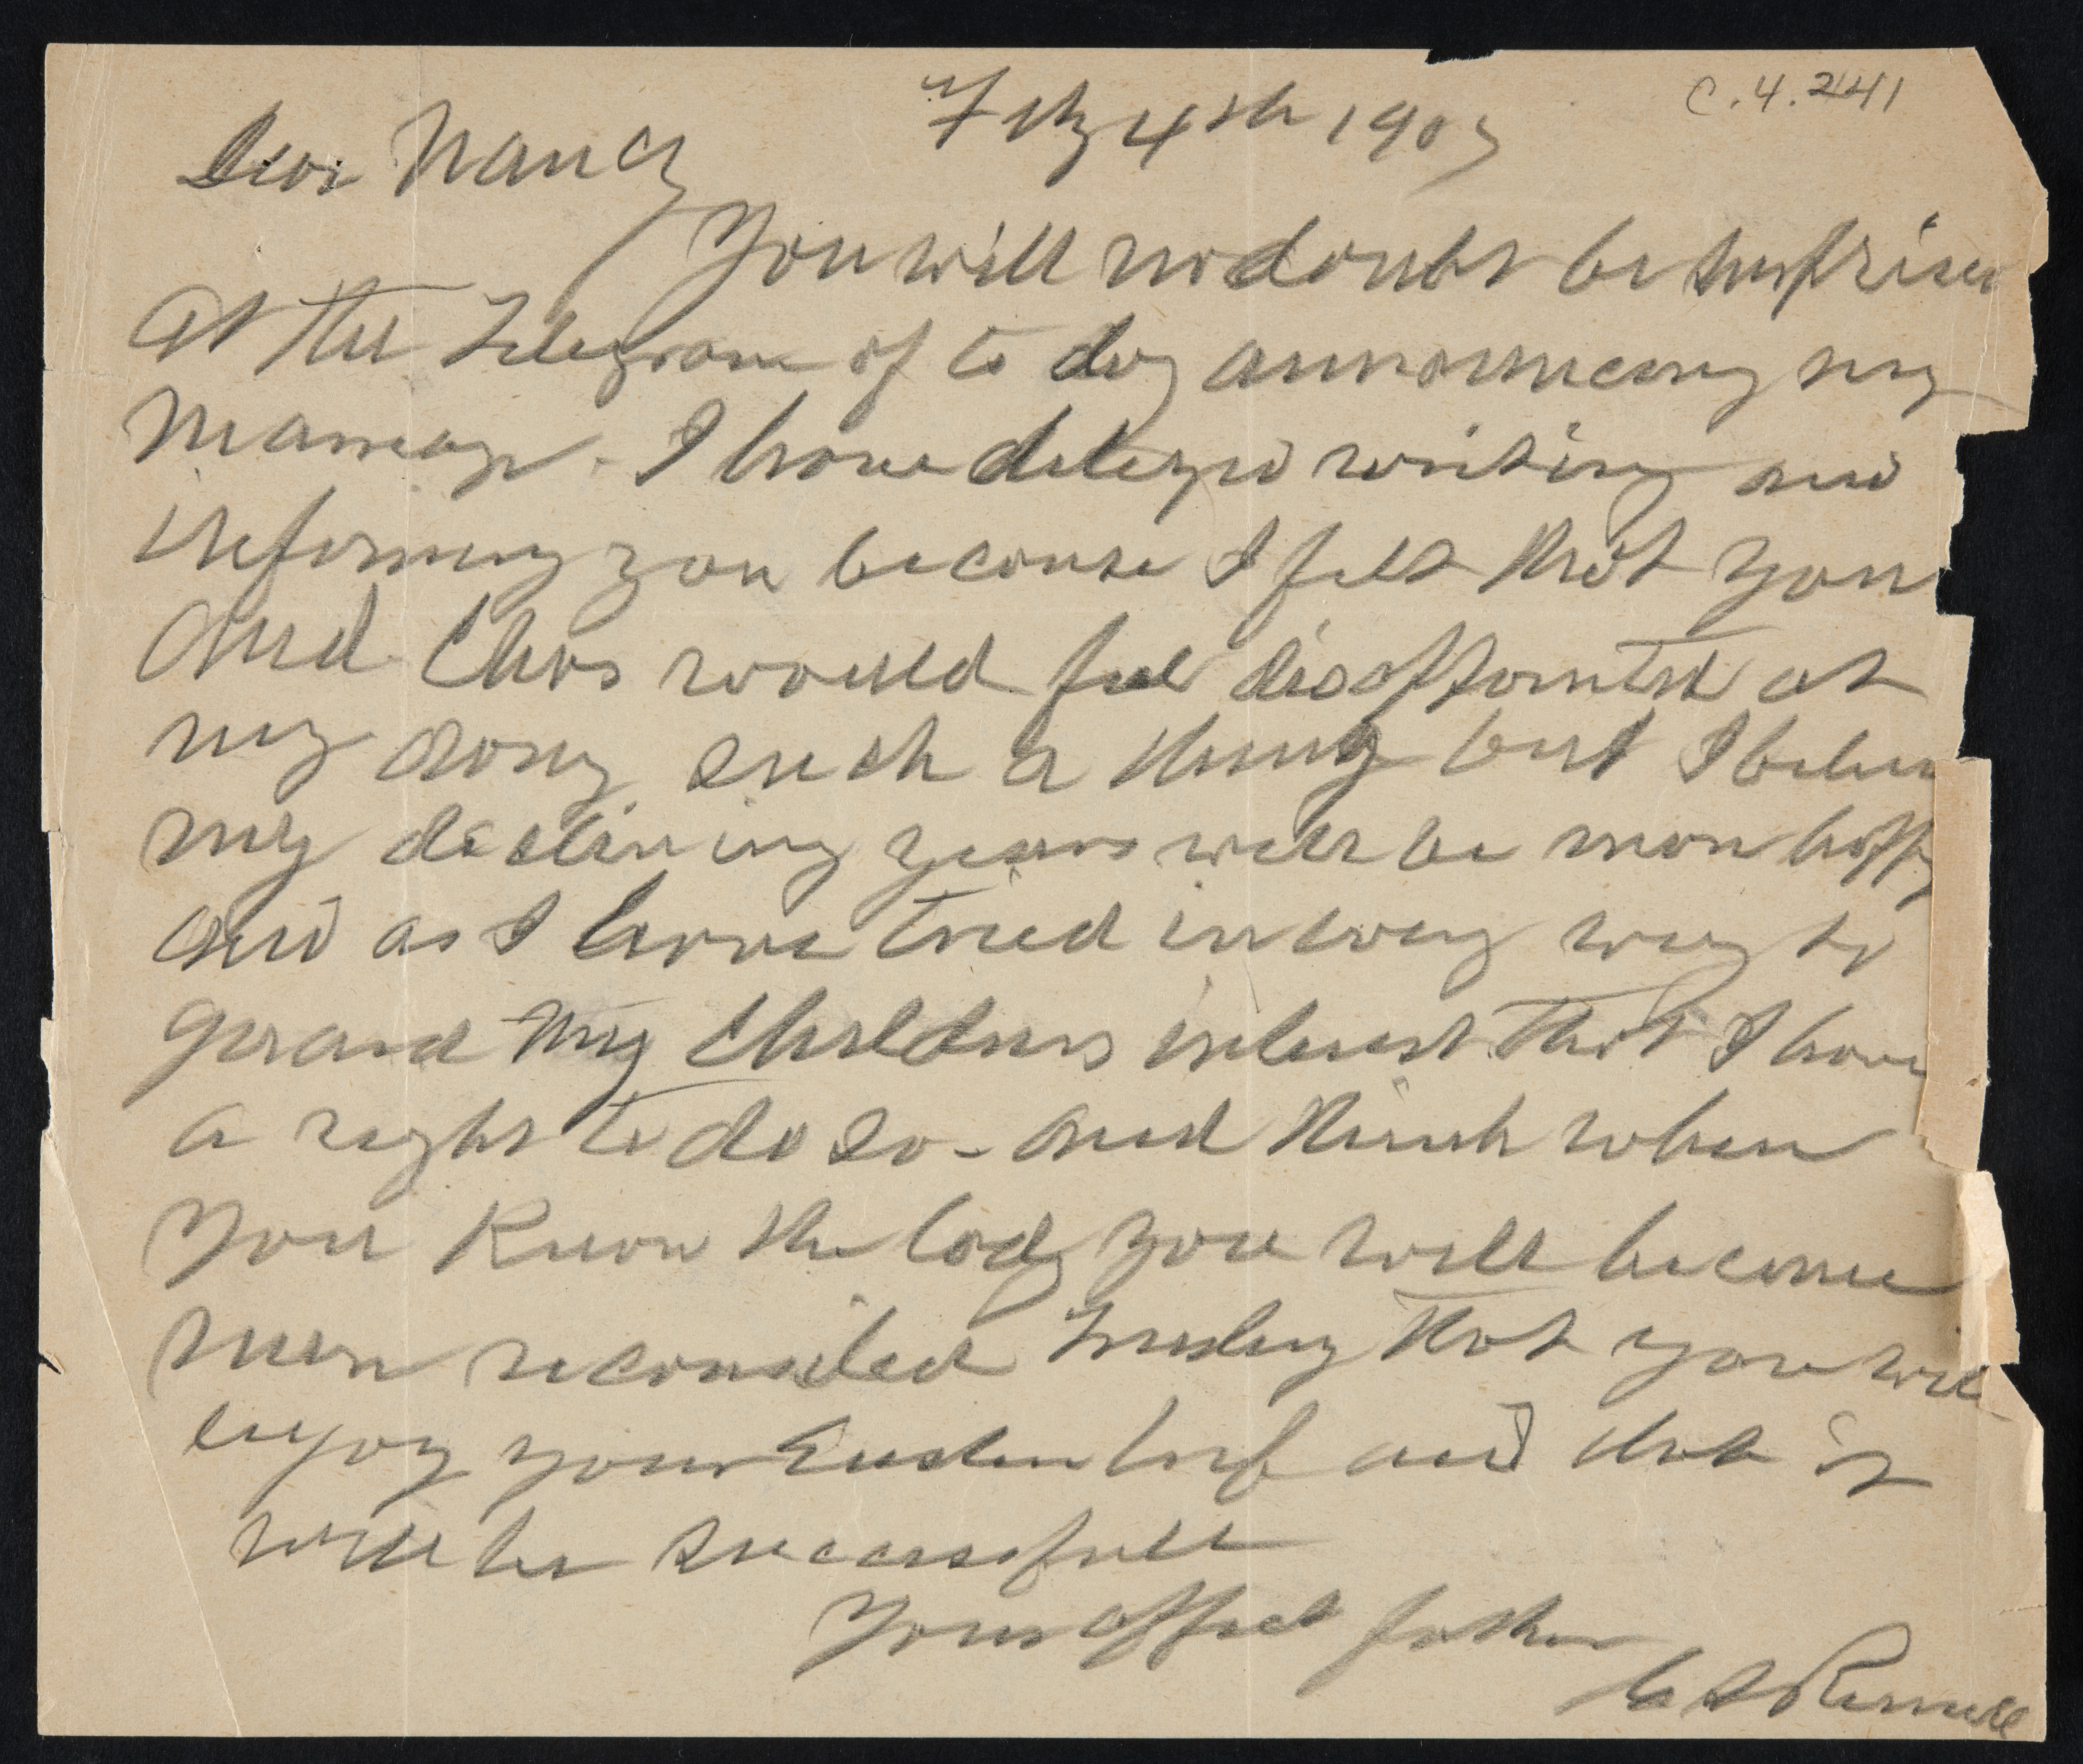 C.4.241
Feby 4th 1907
Dear Nancy
You will no doubt be surprised
at the Telegram of to day announcing my
Marriage. I have delayed writing and
informing you because I felt that you
and Chas would feel disappointed at
my doing such a thing but I believe
my declining years will be more happy
and as I have tried in every way to
guard my Childrens interest that I have
a right to do so - and think when
you Know the lady you will become
more reconciled Trusting that you will
enjoy your Eastern trip and that it
will be successfull
Your affect father